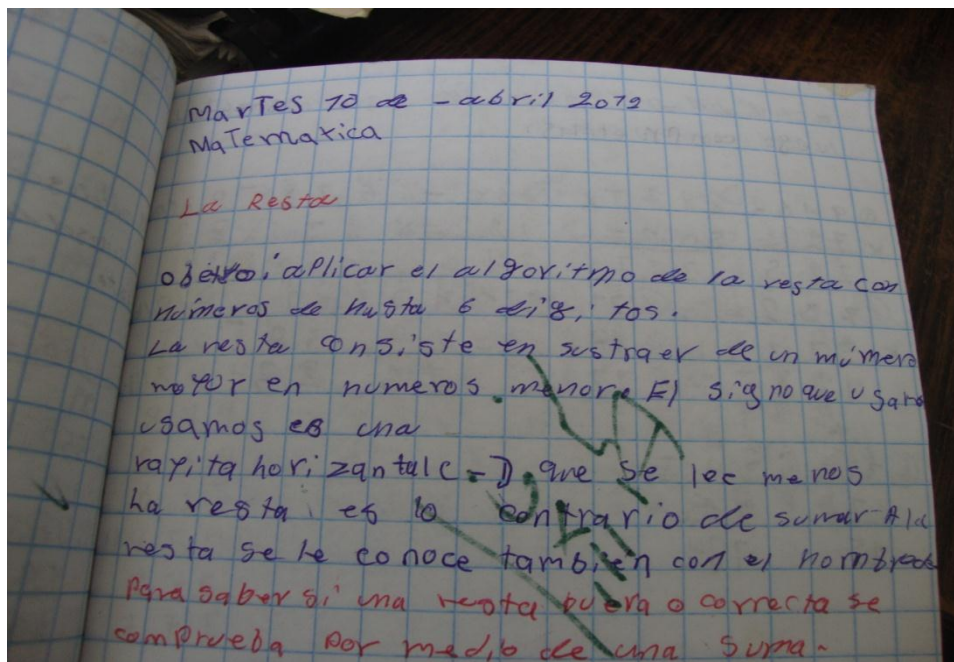 MarTes 10 de - abril 2012
MaTematica
La Resta
aplicar el algoritmo de la resta con
números de hasta 6 dig,tos.
La resta cons,ste en sustraer de un número
mayor en numeros. menor. El signo que usara
usamos es una
rayita horizantal (-), que se lee menos
La resta es lo contrario de sumar A la
resta se le conoce también con el nombre de
Para saber si una resta buera o correcta se
comprueba por medio de una suma.